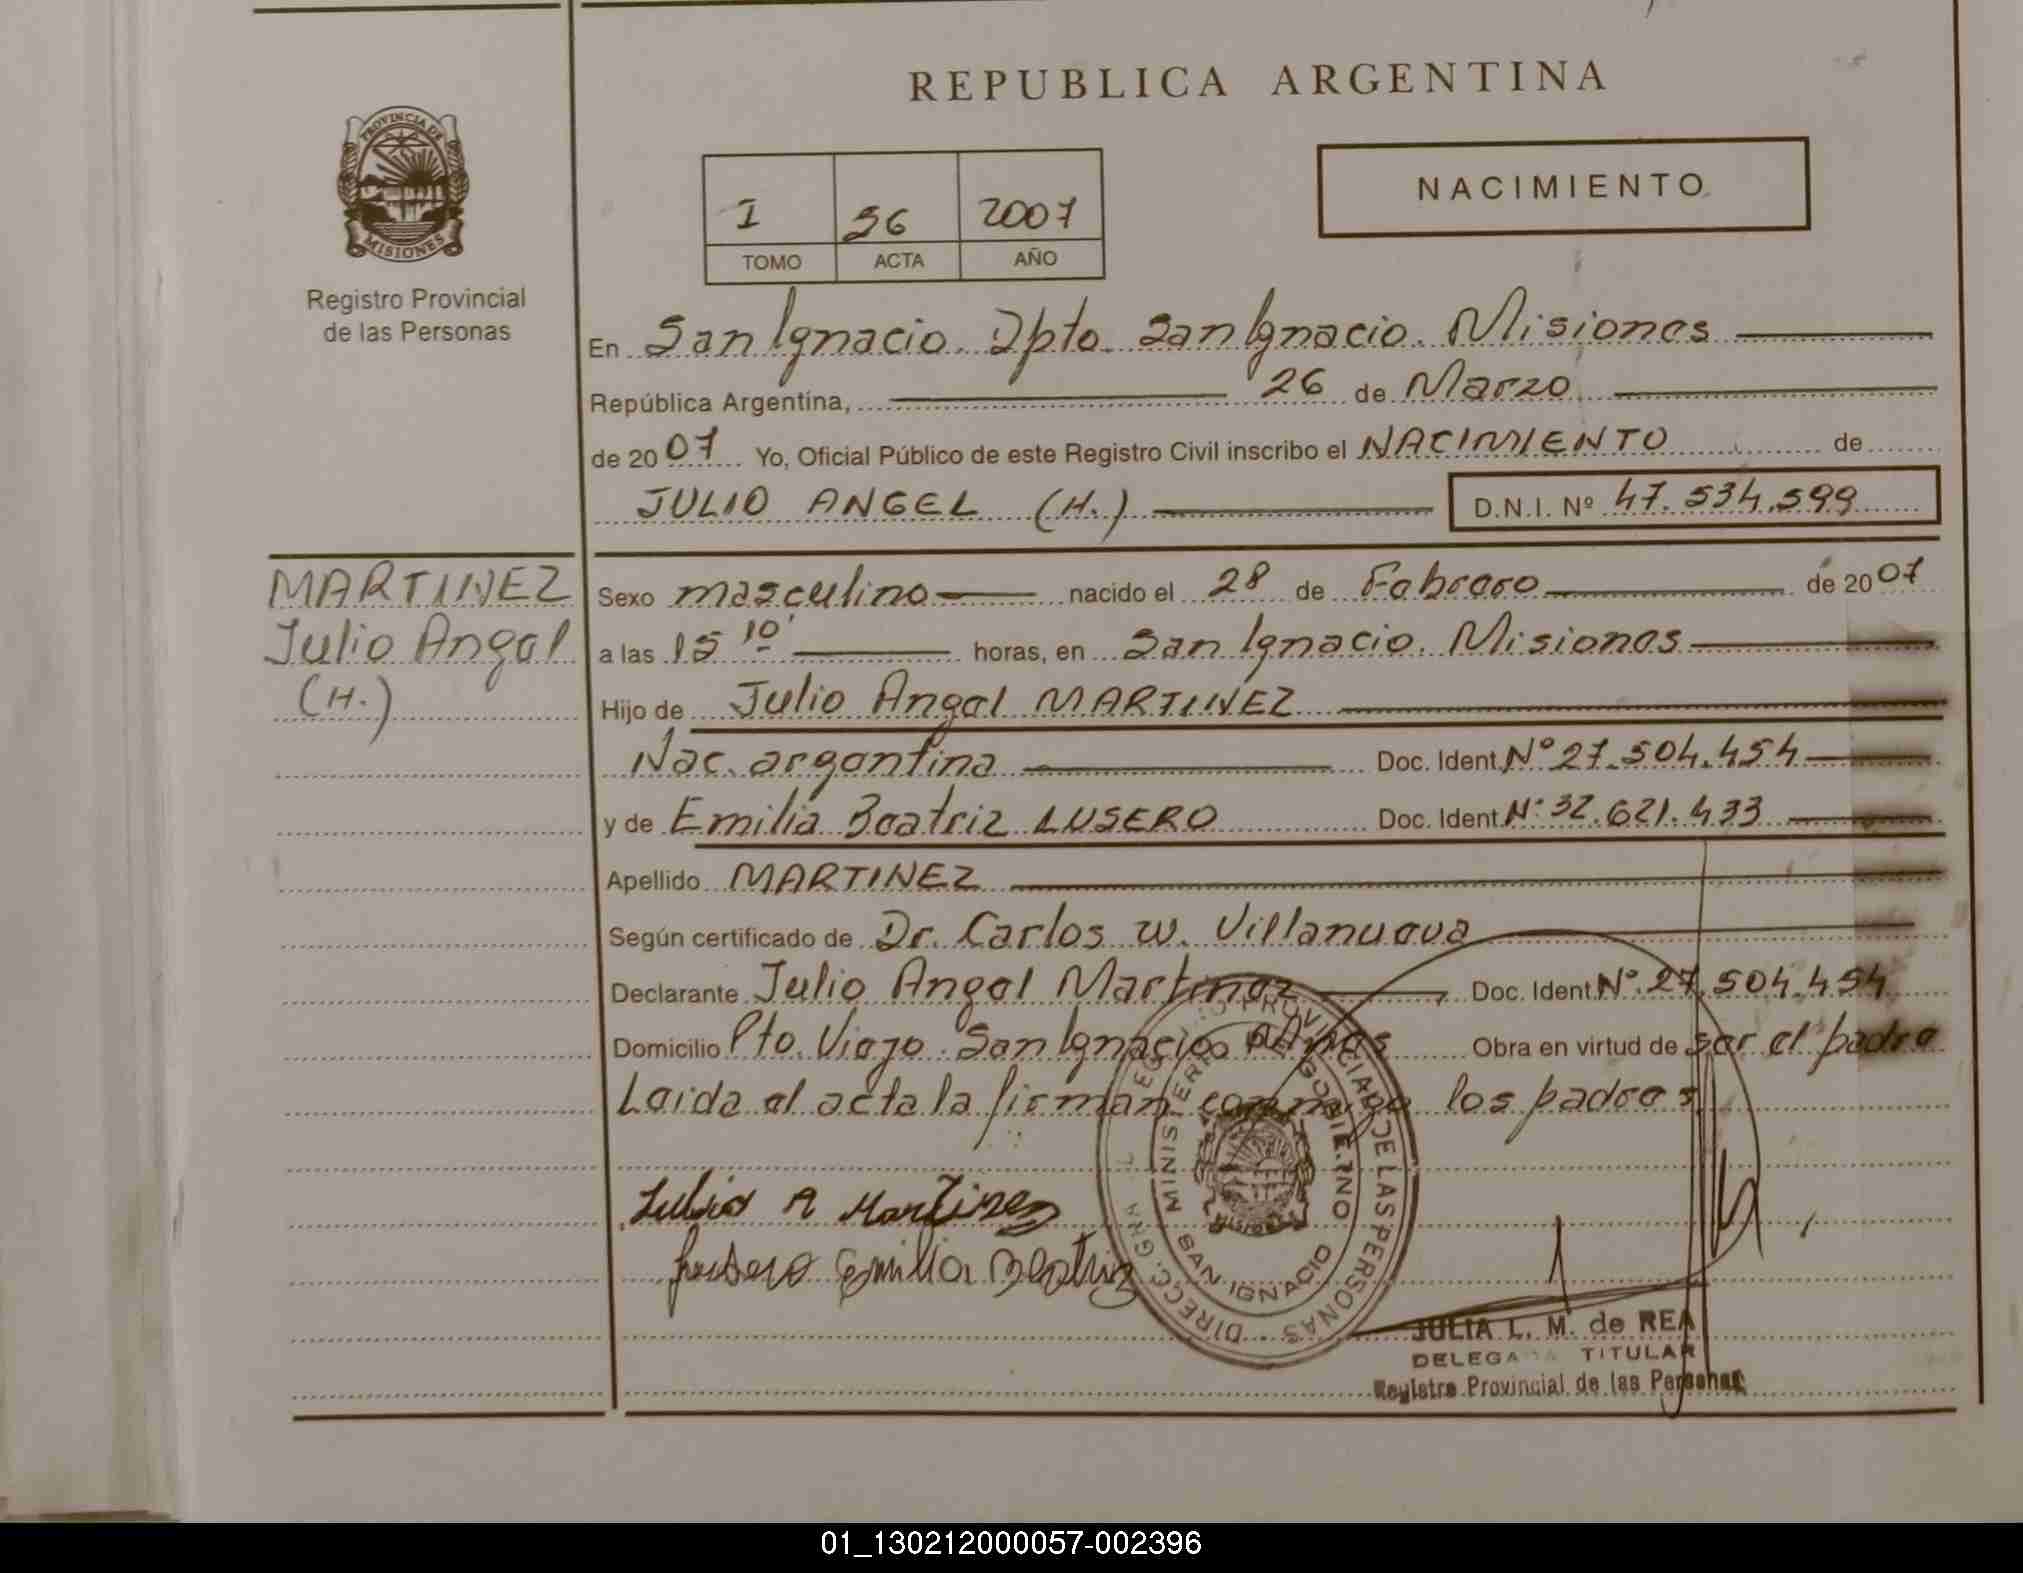 REPUBLICA ARGENTINA
PROVINCIA DE
MISIONES
Registro Provincial
de las Personas
I 56 2007
TOMO ACTA AÑO
NACIMIENTO
En San Ignacio. Dpto. San Ignacio. Misiones
República Argentina, 26 de Marzo
de 2007 Yo, Oficial Público de este Registro Civil inscribo el NACIMIENTO de
JULIO ANGEL (H.) D.N.I. Nº 47.534.599
MARTINEZ
Julio Angel
(H.)
Sexo masculino nacido el 28 de Febrero de 2007
a las 15 10' horas, en San Ignacio. Misiones
Hijo de Julio Angel MARTINEZ
Nac. argentina Doc. Ident. Nº 27.504.454
y de Emilia Beatriz LUSERO Doc. Ident. Nº 32.621.433
Apellido MARTINEZ
Según certificado de Dr. Carlos W. Villanueva
Declarante Julio Angel Martinez Doc. Ident. Nº 27.504.454
Domicilio Pto. Viejo. San Ignacio Mnes Obra en virtud de ser el padre
Leida el acta la firman conmigo los padres
Julio A Martinez
Lusero Emilia Beatriz
DIRECC. GRAL. REGISTRO PROVINCIAL DE LAS PERSONAS
MINISTERIO DE GOBIERNO
MISIONES
SAN IGNACIO
JULIA L. M. de REA
DELEGADA TITULAR
Registro Provincial de las Personas
01_130212000057-002396